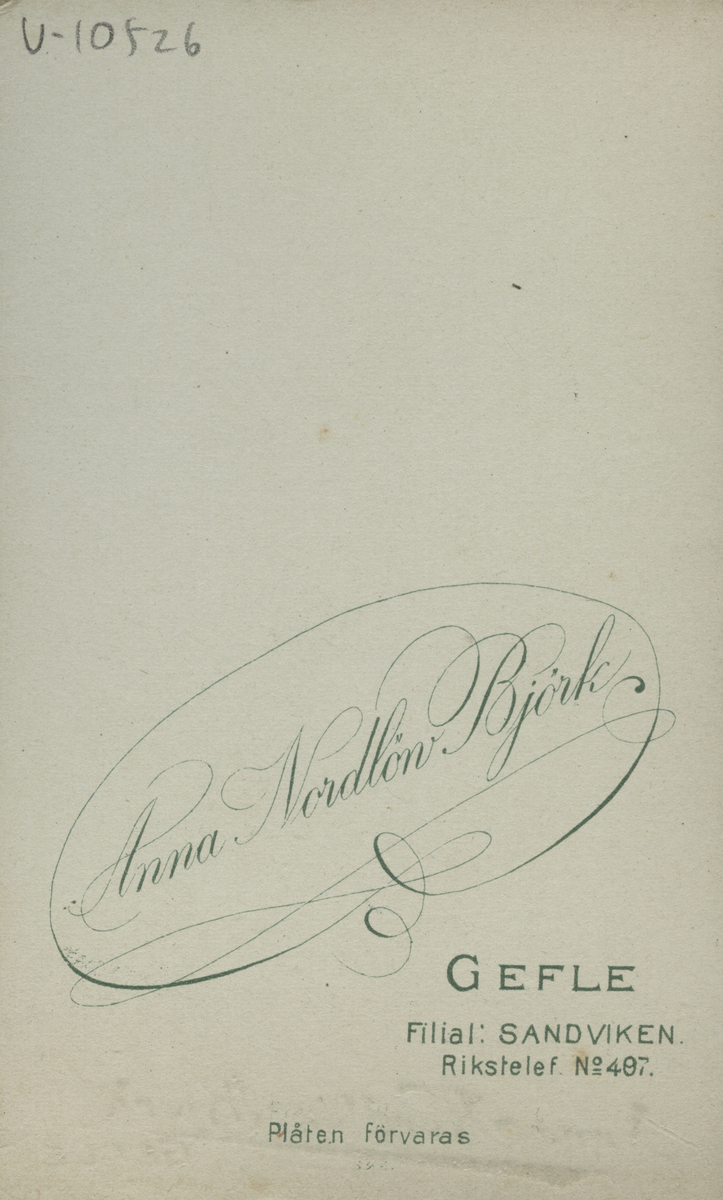 U-10526
Anna Nordlöw Björk
GEFLE
Filial: SANDVIKEN.
Rikstelef. Nº 497.
Plåten förvaras